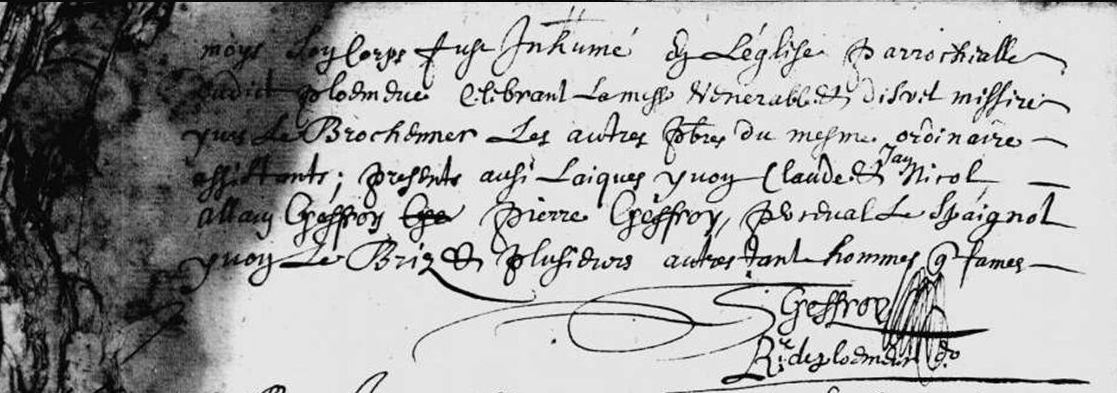 moys son corps fust Inhumé en Léglise parrochialle
dudict ploemeur Celebrant La messe venerable et discret missire
yves Le Brochenner Les autres pbres du mesme ordinaire
assistants ; presents ausi Laiques yvon Claude et Jan Nicol
allain Geffroy Pierre Geffroy, perceval Le Spaignol
yvon Le Briz et plusieurs autres tant hommes q fames
Geffroy
Rr. de ploemeur